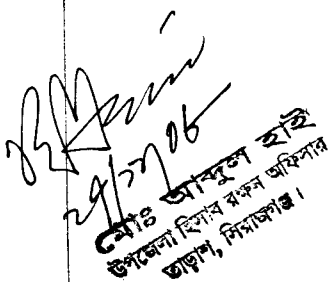 মোঃ আব্দুল হাই
উপজেলা হিসাব রক্ষন অফিসার
তাড়াশ, সিরাজগঞ্জ।